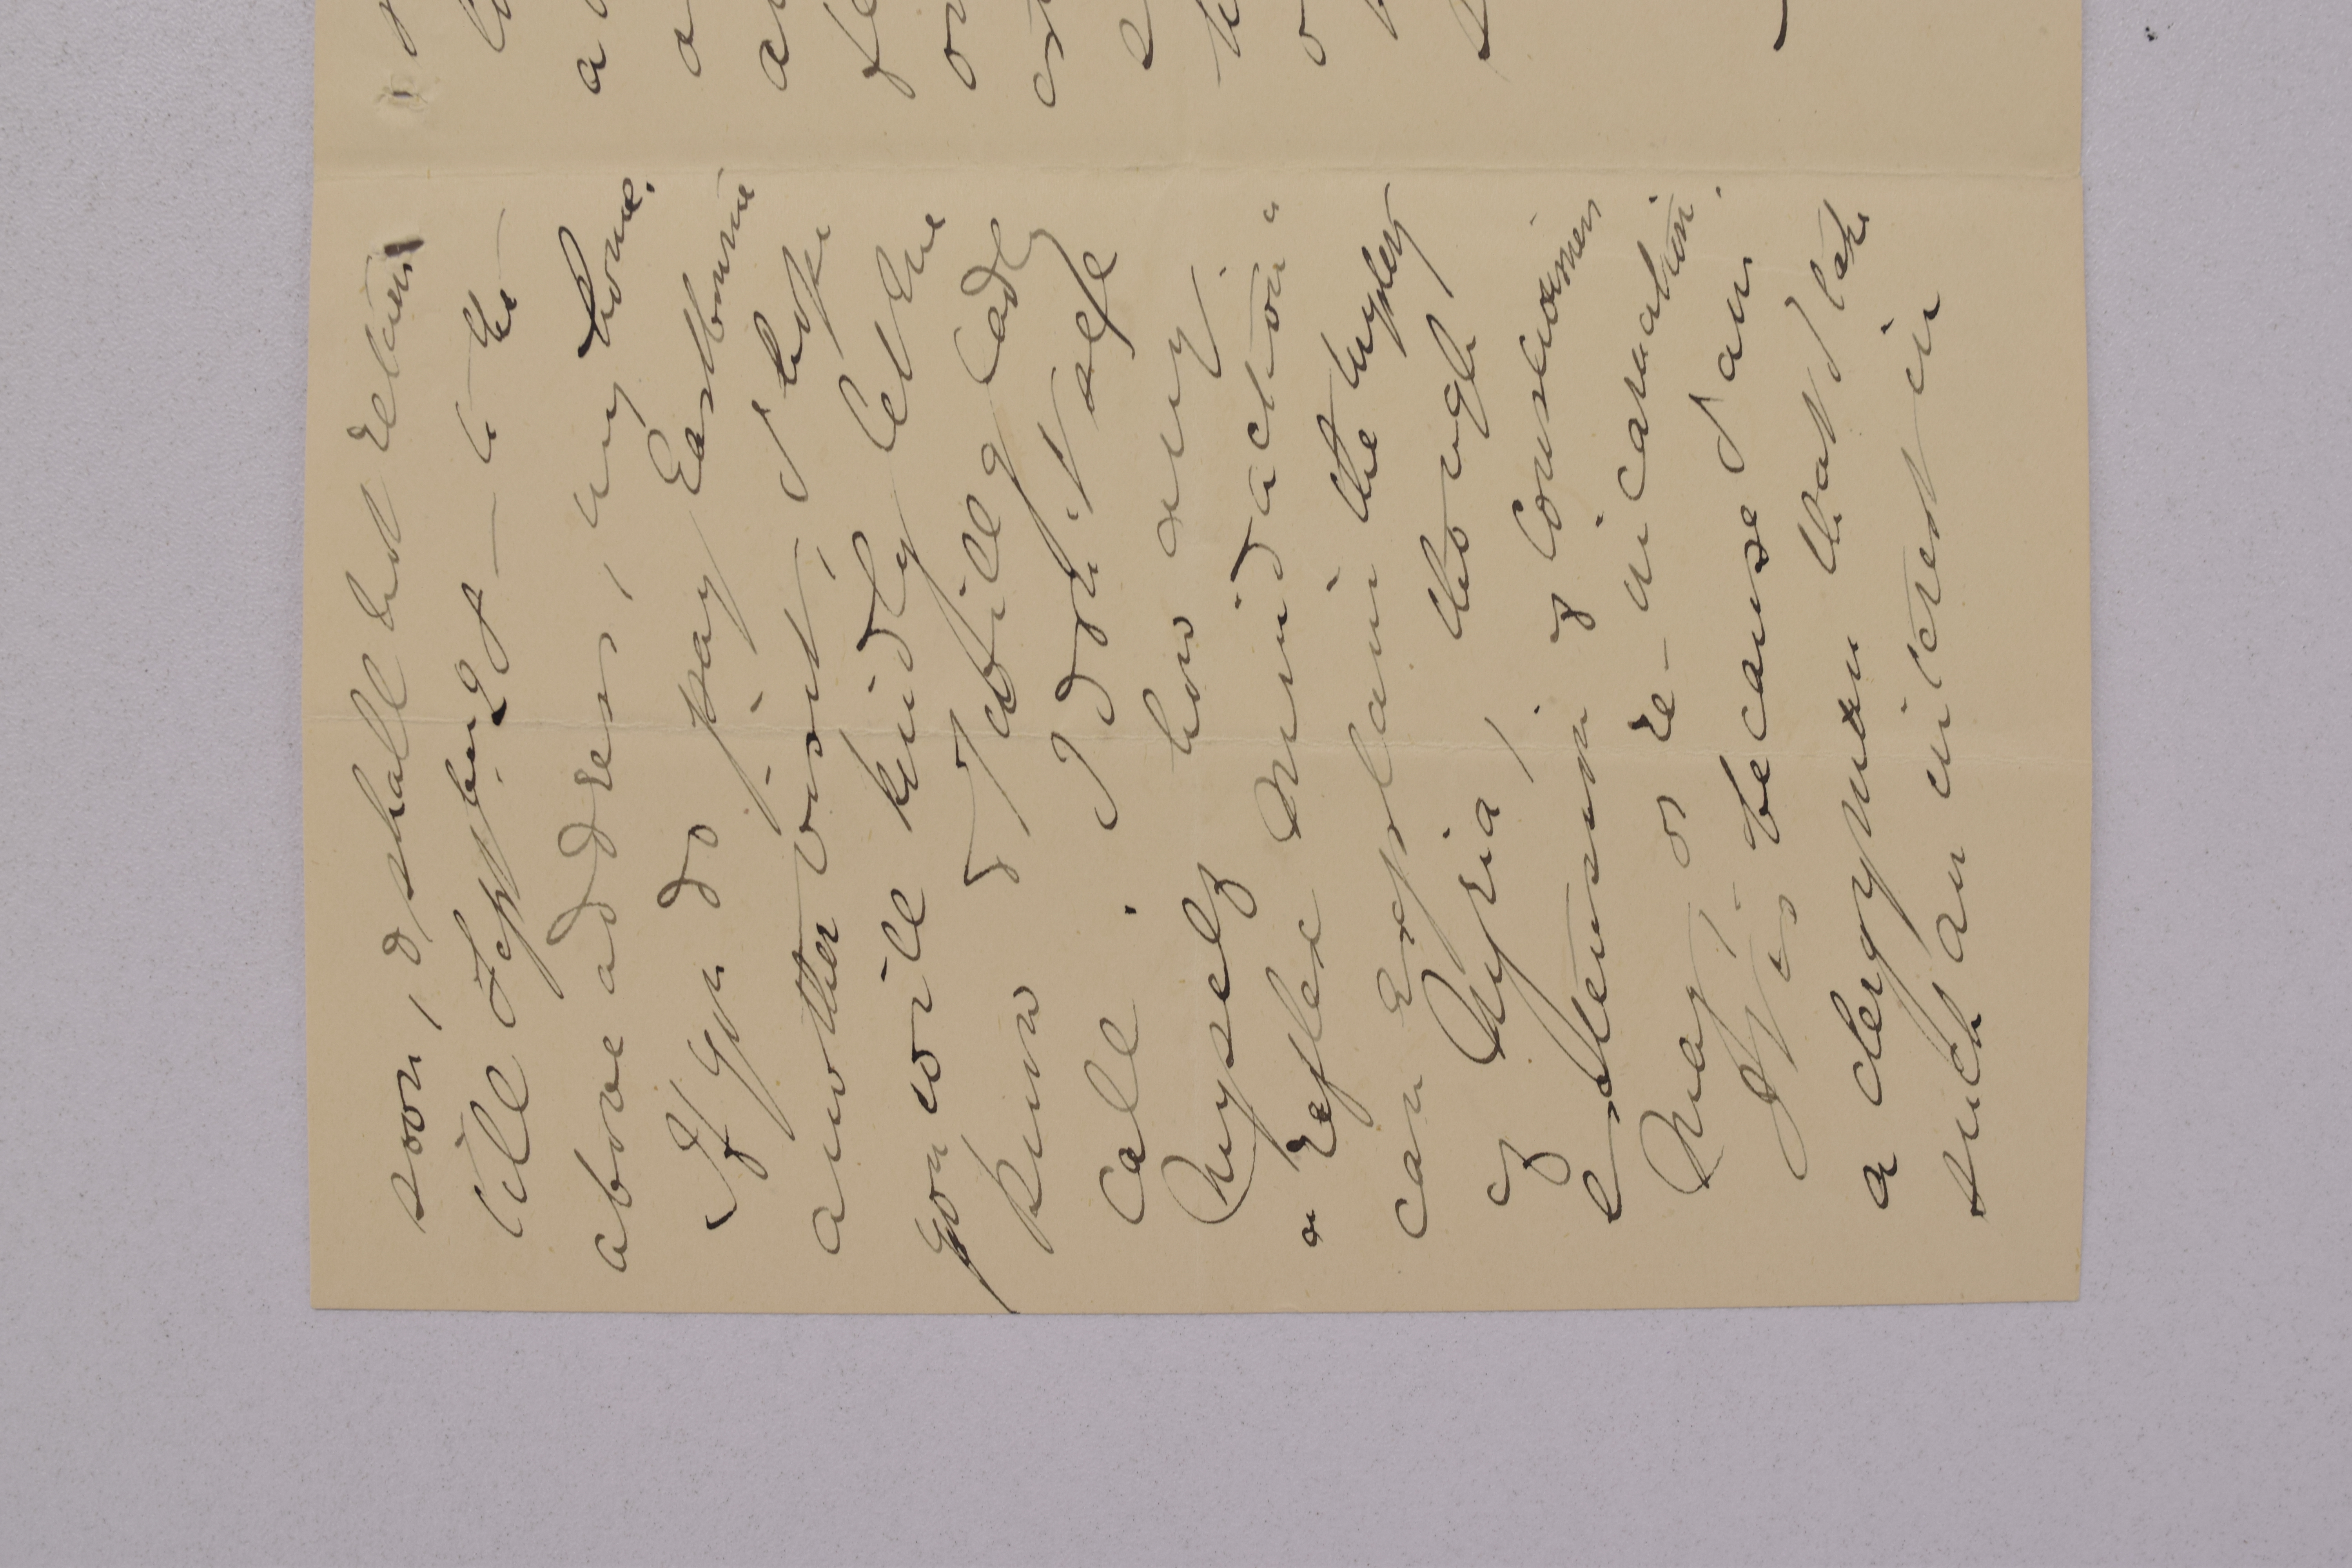 soon, & shall not return
till Septbr 29 – to the
above address, my home.
If you do pay Eastbourne
another visit, I hope
you will kindly let me
know & I will gladly
call. I don't see
myself how any
"reflex mind action"
can explain the mystery
of Myria, though
extension of consciousness
may, or re-incarnation.
It is because I am
a clergyman that I take
such an interest in